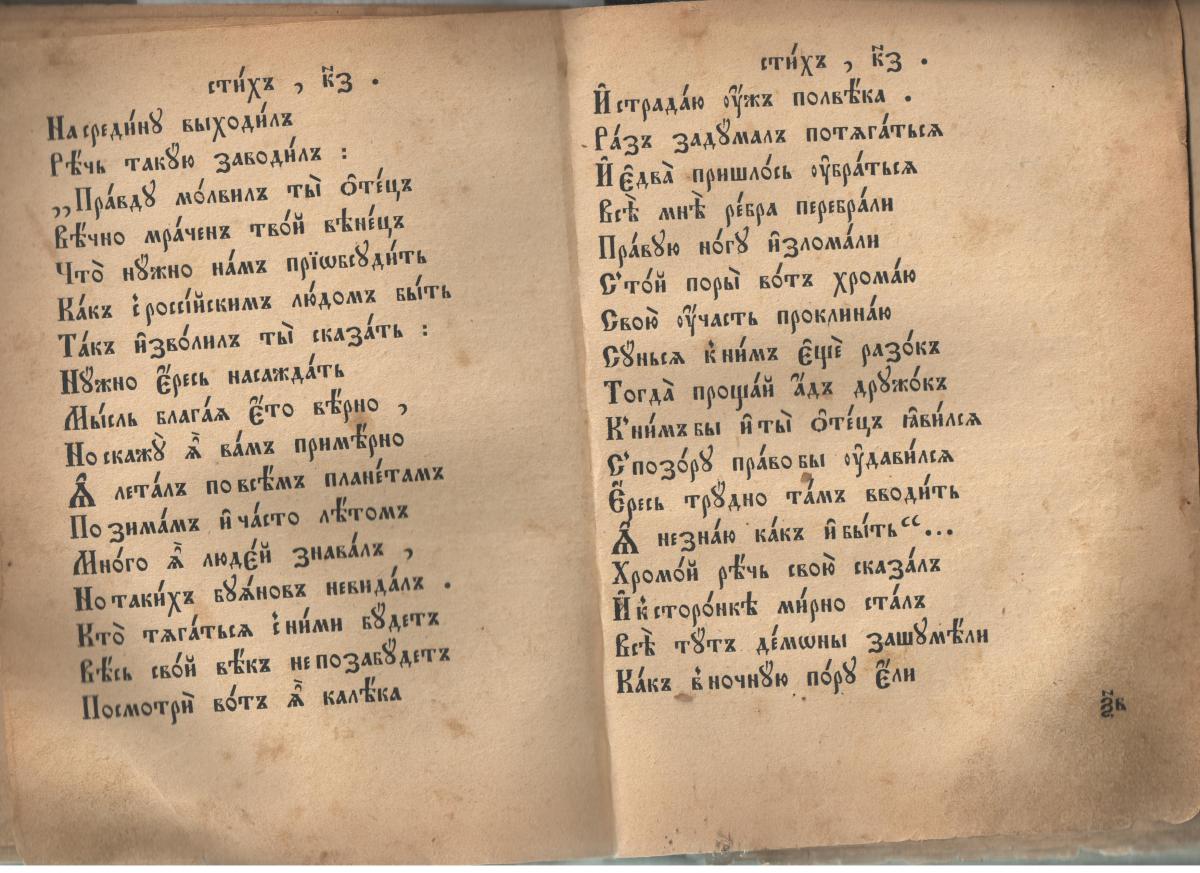 сти́хъ , к҃з .
На среди́нꙋ выходи́лъ
Рѣ́чь такꙋ́ю заводи́лъ :
„Пра́вдꙋ мо́лвилъ ты̀ ѻ҆те́цъ
Вѣ́чно мра́ченъ тво́й вѣне́цъ
Что̀ нꙋ́жно на́мъ прїѡбсꙋди́ть
Ка́къ с̾россі́йскимъ лю́домъ бы́ть
Та́къ и҆зво́лилъ ты̀ сказа́ть :
Нꙋ́жно є҆́ресь насажда́ть
Мы́сль блага́я є҆́то вѣ́рно ,
Но скажꙋ̀ ѧ҆̀ ва́мъ примѣ́рно
Ѧ҆̀ лета́лъ по всѣ́мъ плане́тамъ
По зима́мъ и҆ ча́сто лѣ́томъ
Мно́го ѧ҆̀ люде́й знава́лъ ,
Но таки́хъ бꙋѧ́новъ невида́лъ .
Кто̀ тѧга́тьсѧ с̾ни́ми бꙋ́детъ
Вѣ́сь сво́й вѣ́къ не позабꙋ́детъ
Посмотрѝ во́тъ ѧ҆̀ калѣ́ка
сти́хъ , к҃з .
И҆ страда́ю ᲂу҆́жъ полвѣ́ка .
Ра́зъ задꙋ́малъ потѧга́тьсѧ
И҆ є҆два̀ пришло́сь ᲂу҆бра́тьсѧ
Всѣ̀ мнѣ̀ ре́бра перебра́ли
Пра́вꙋю но́гꙋ и҆злома́ли
С̾то́й поры̀ во́тъ хрома́ю
Свою̀ ᲂу҆́часть проклина́ю
Сꙋ́ньсѧ к̾ни́мъ є҆щѐ разо́къ
Тогда̀ проща́й а҆́дъ дрꙋжо́къ
К̾ни́мъ бы и҆ ты̀ ѻ҆те́цъ ꙗ҆ви́лсѧ
С̾позо́рꙋ пра́во бы ᲂу҆дави́лсѧ
Є҆́ресь трꙋ́дно та́мъ вводи́ть
Ѧ҆̀ незна́ю ка́къ и҆ бы́ть“...
Хромо́й рѣ́чь свою̀ сказа́лъ
И҆ к̾сторо́нкѣ ми́рно ста́лъ
Всѣ̀ тꙋ́тъ де́мѡны зашꙋмѣ́ли
Ка́къ в̾ночнꙋ́ю по́рꙋ є҆́ли